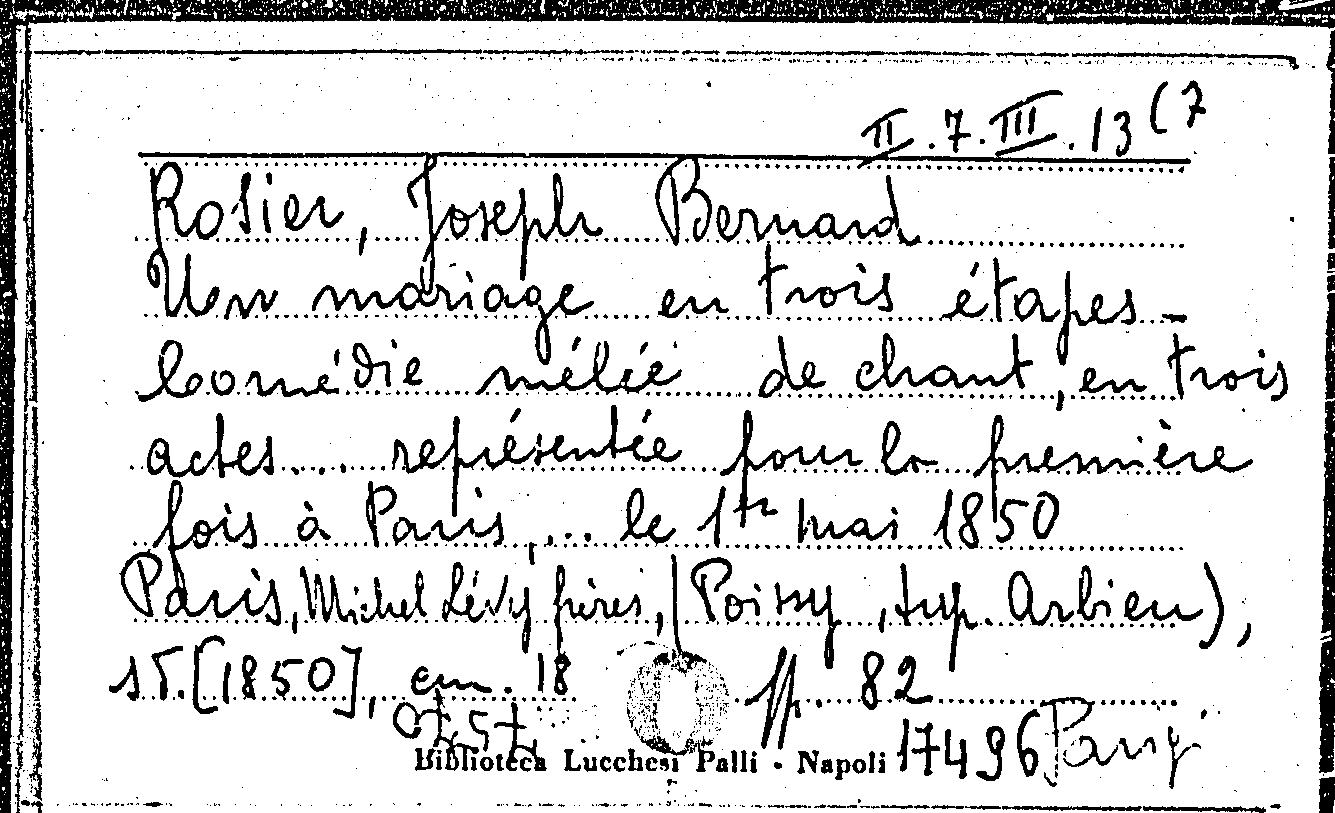 II.7.III.13(7
Rosier, Joseph Bernard
Un mariage en trois étapes -
Comédie mélée de chant, en trois
actes... représentée pour la première
fois à Paris,... le 1er mai 1850
Paris, Michel Lévy frères, (Poissy, typ. Arbieu),
s.d. [1850], cm. 18 pp. 82
Biblioteca Lucchesi Palli - Napoli 17496